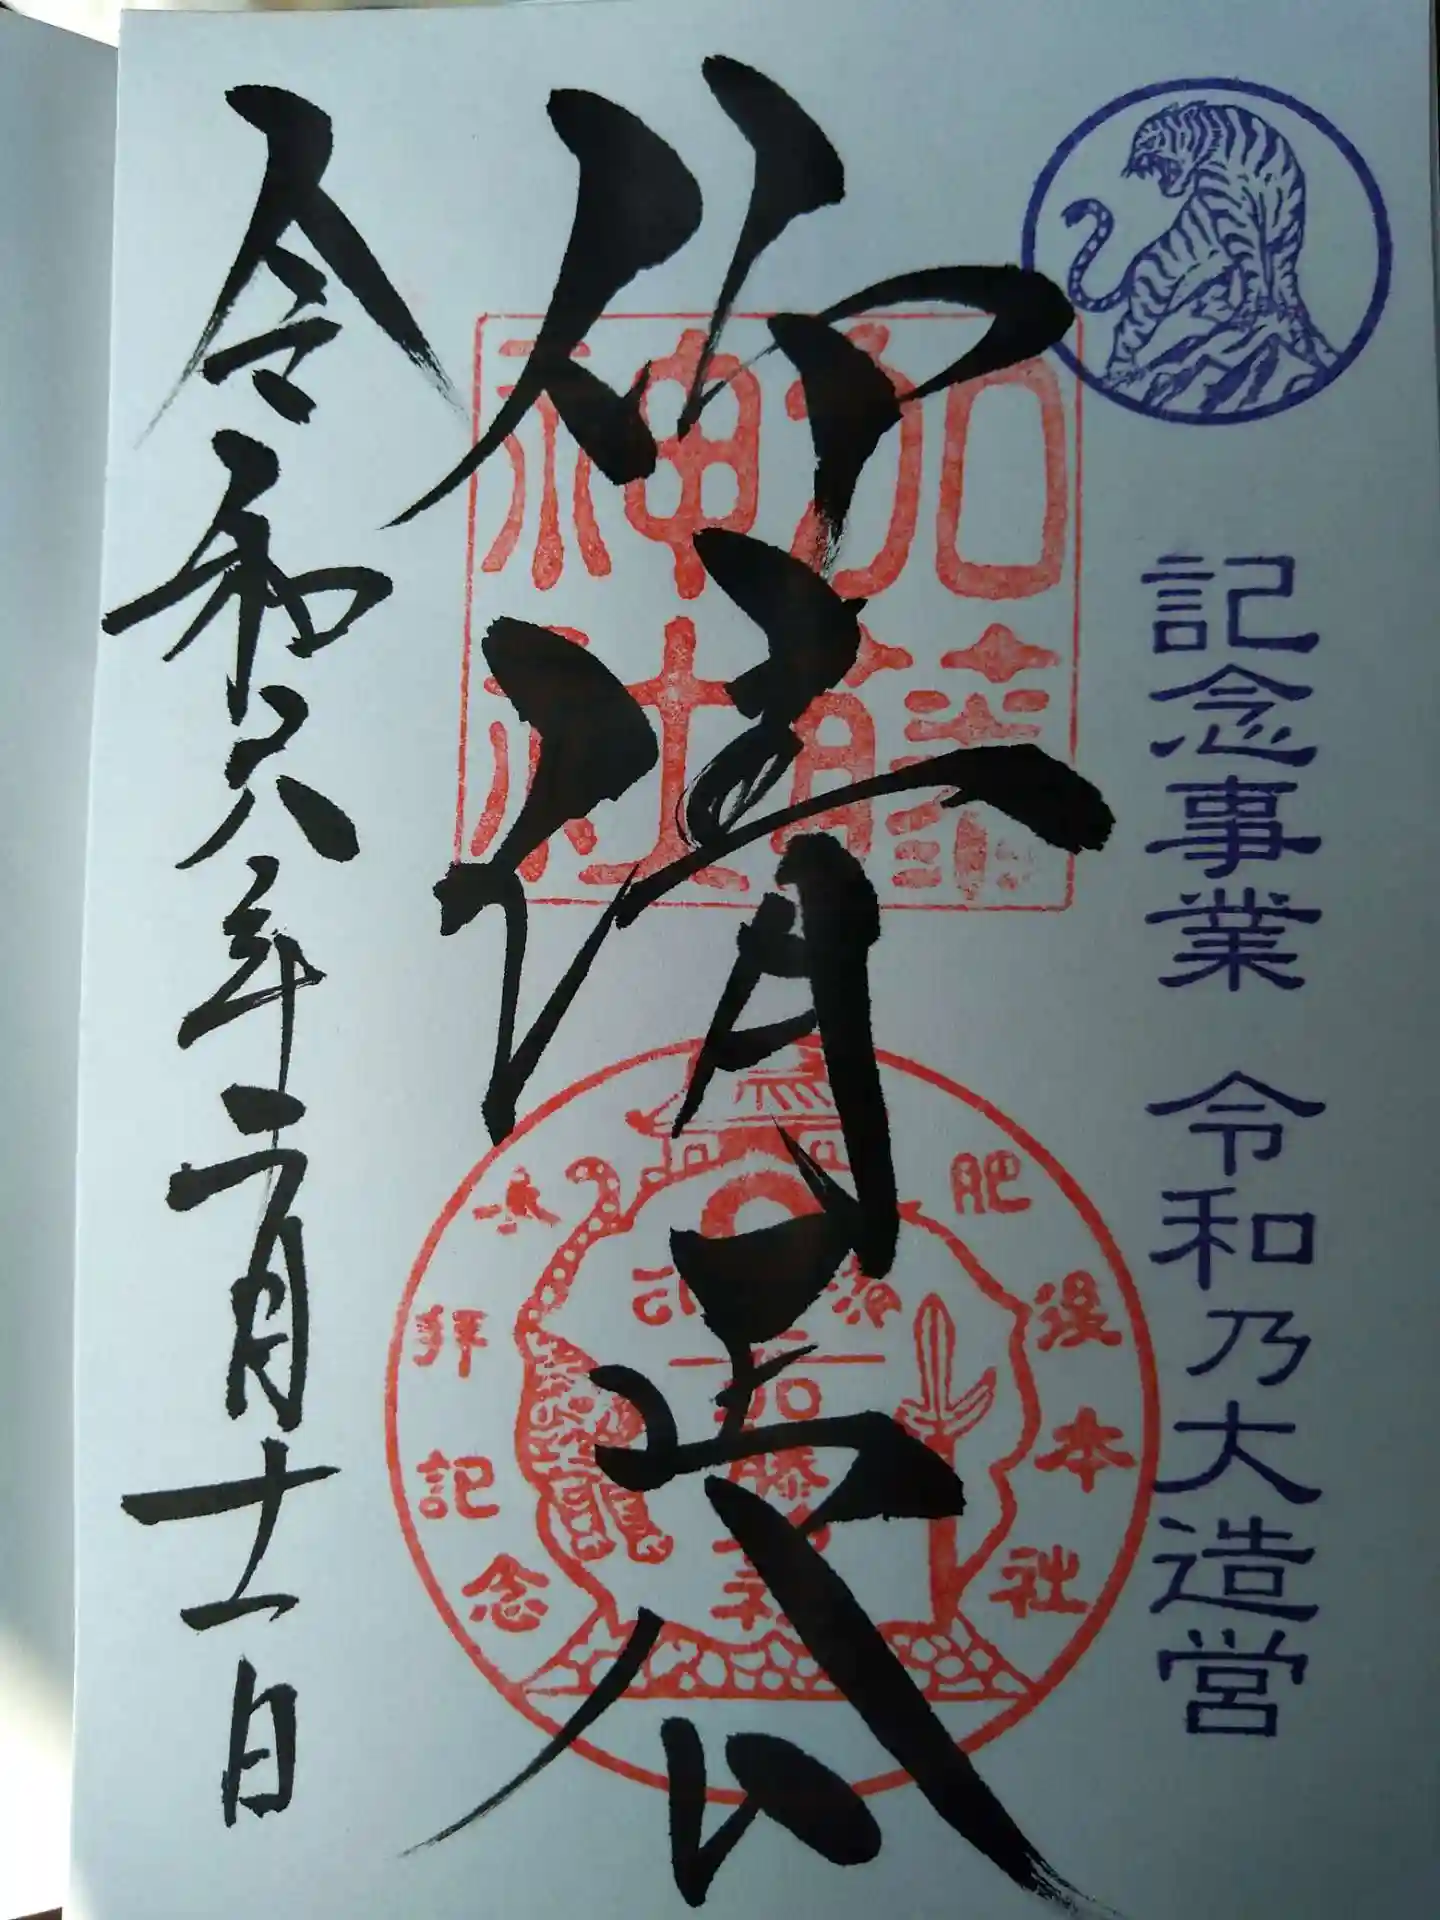 記念事業 令和乃大造営
仰清正公
加藤
神社
肥後本社
参拝記念
加藤神社
令和六年二月十一日